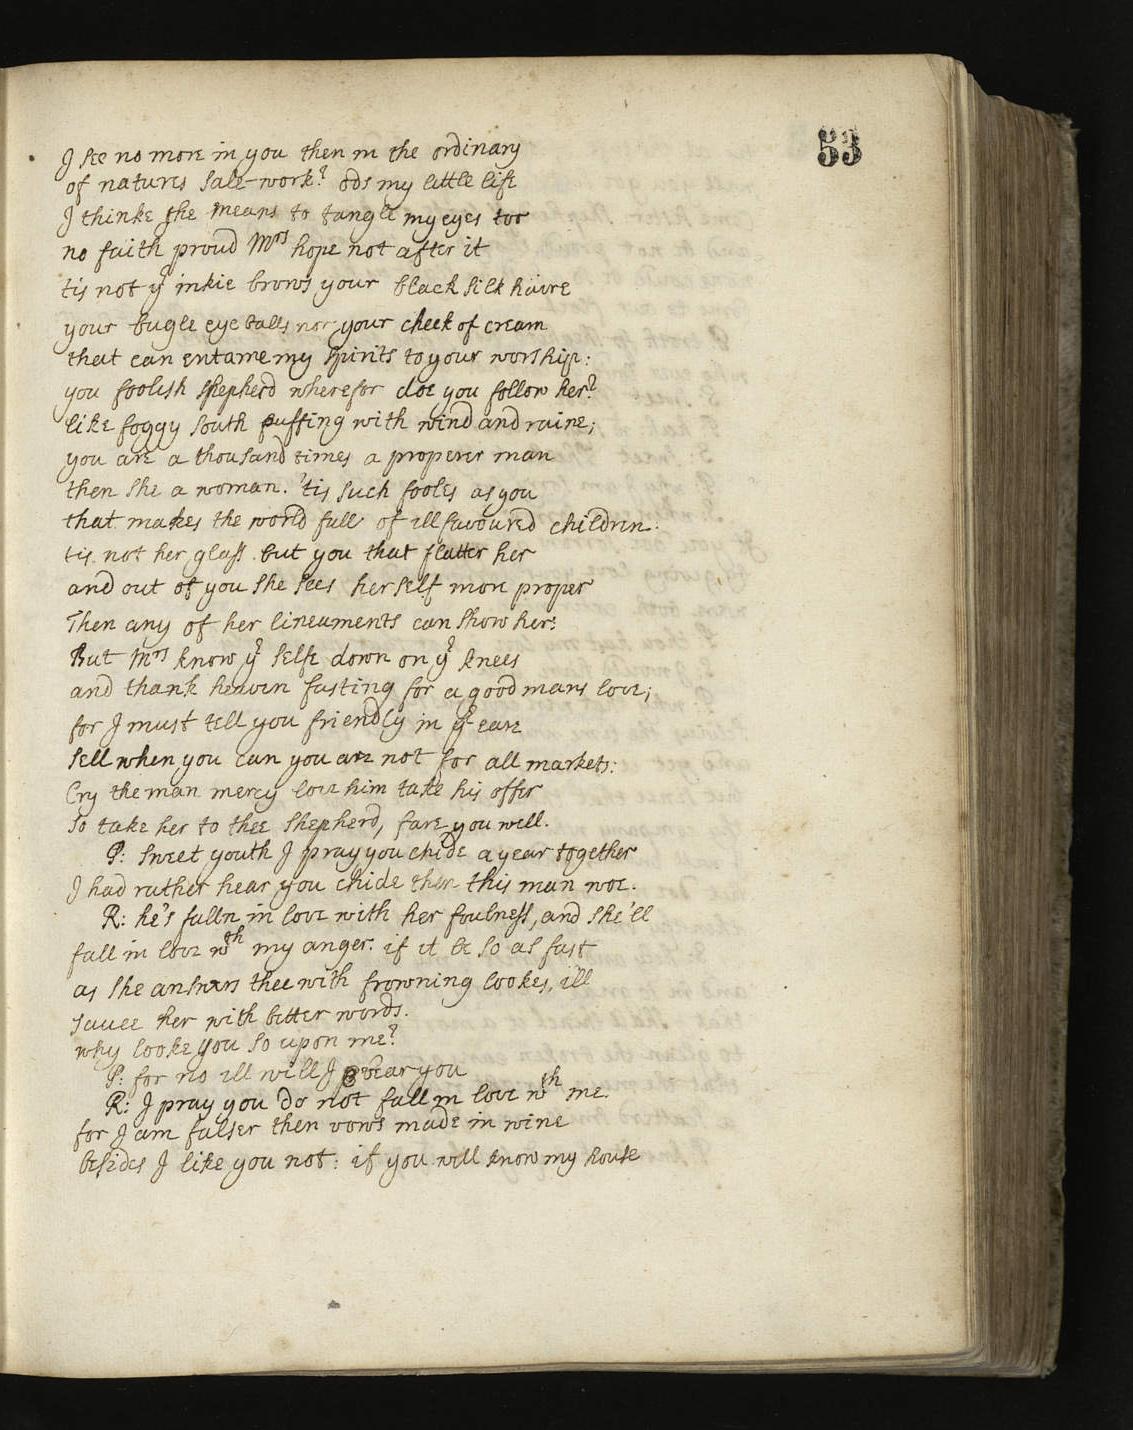 53
I see no more in you then in the ordinary
of natures sale-work? ods my little life
I thinke she means to tangle my eyes too
no faith proud Mrs hope not after it
tis not yr inkie brows your black silk haire
your bugle eye balls nor your cheek of cream
that can entame my spirits to your worship:
you foolish shepherd wherefor doe you follow her?
like foggy south puffing with wind and raine;
you are a thousand times a properer man
then she a woman. 'tis such fooles as you
that makes the world full of ill favoured children.
tis not her glass but you that flatter her
and out of you she sees her self more proper
Then any of her lineaments can show her:
But Mrs know yr selfe down on yr knees
and thank heaven fasting for a good mans love;
for I must tell you friendly in yr eare
sell when you can you are not for all markets:
Cry the man mercy love him take his offer
so take her to thee shepherd, fare you well.
P: sweet youth I pray you chide a year together
I had rather hear you chide then this man woe.
R: he's falln in love with her foulness, and she'll
fall in love wth my anger. if it be so as fast
as she answers thee with frowning lookes, ill
sauce her with better words.
why looke you so upon me?
P: for no ill will I bear you
R: I pray you do not fall in love wth me.
for I am falser then vows made in wine
besides I like you not: if you will know my house